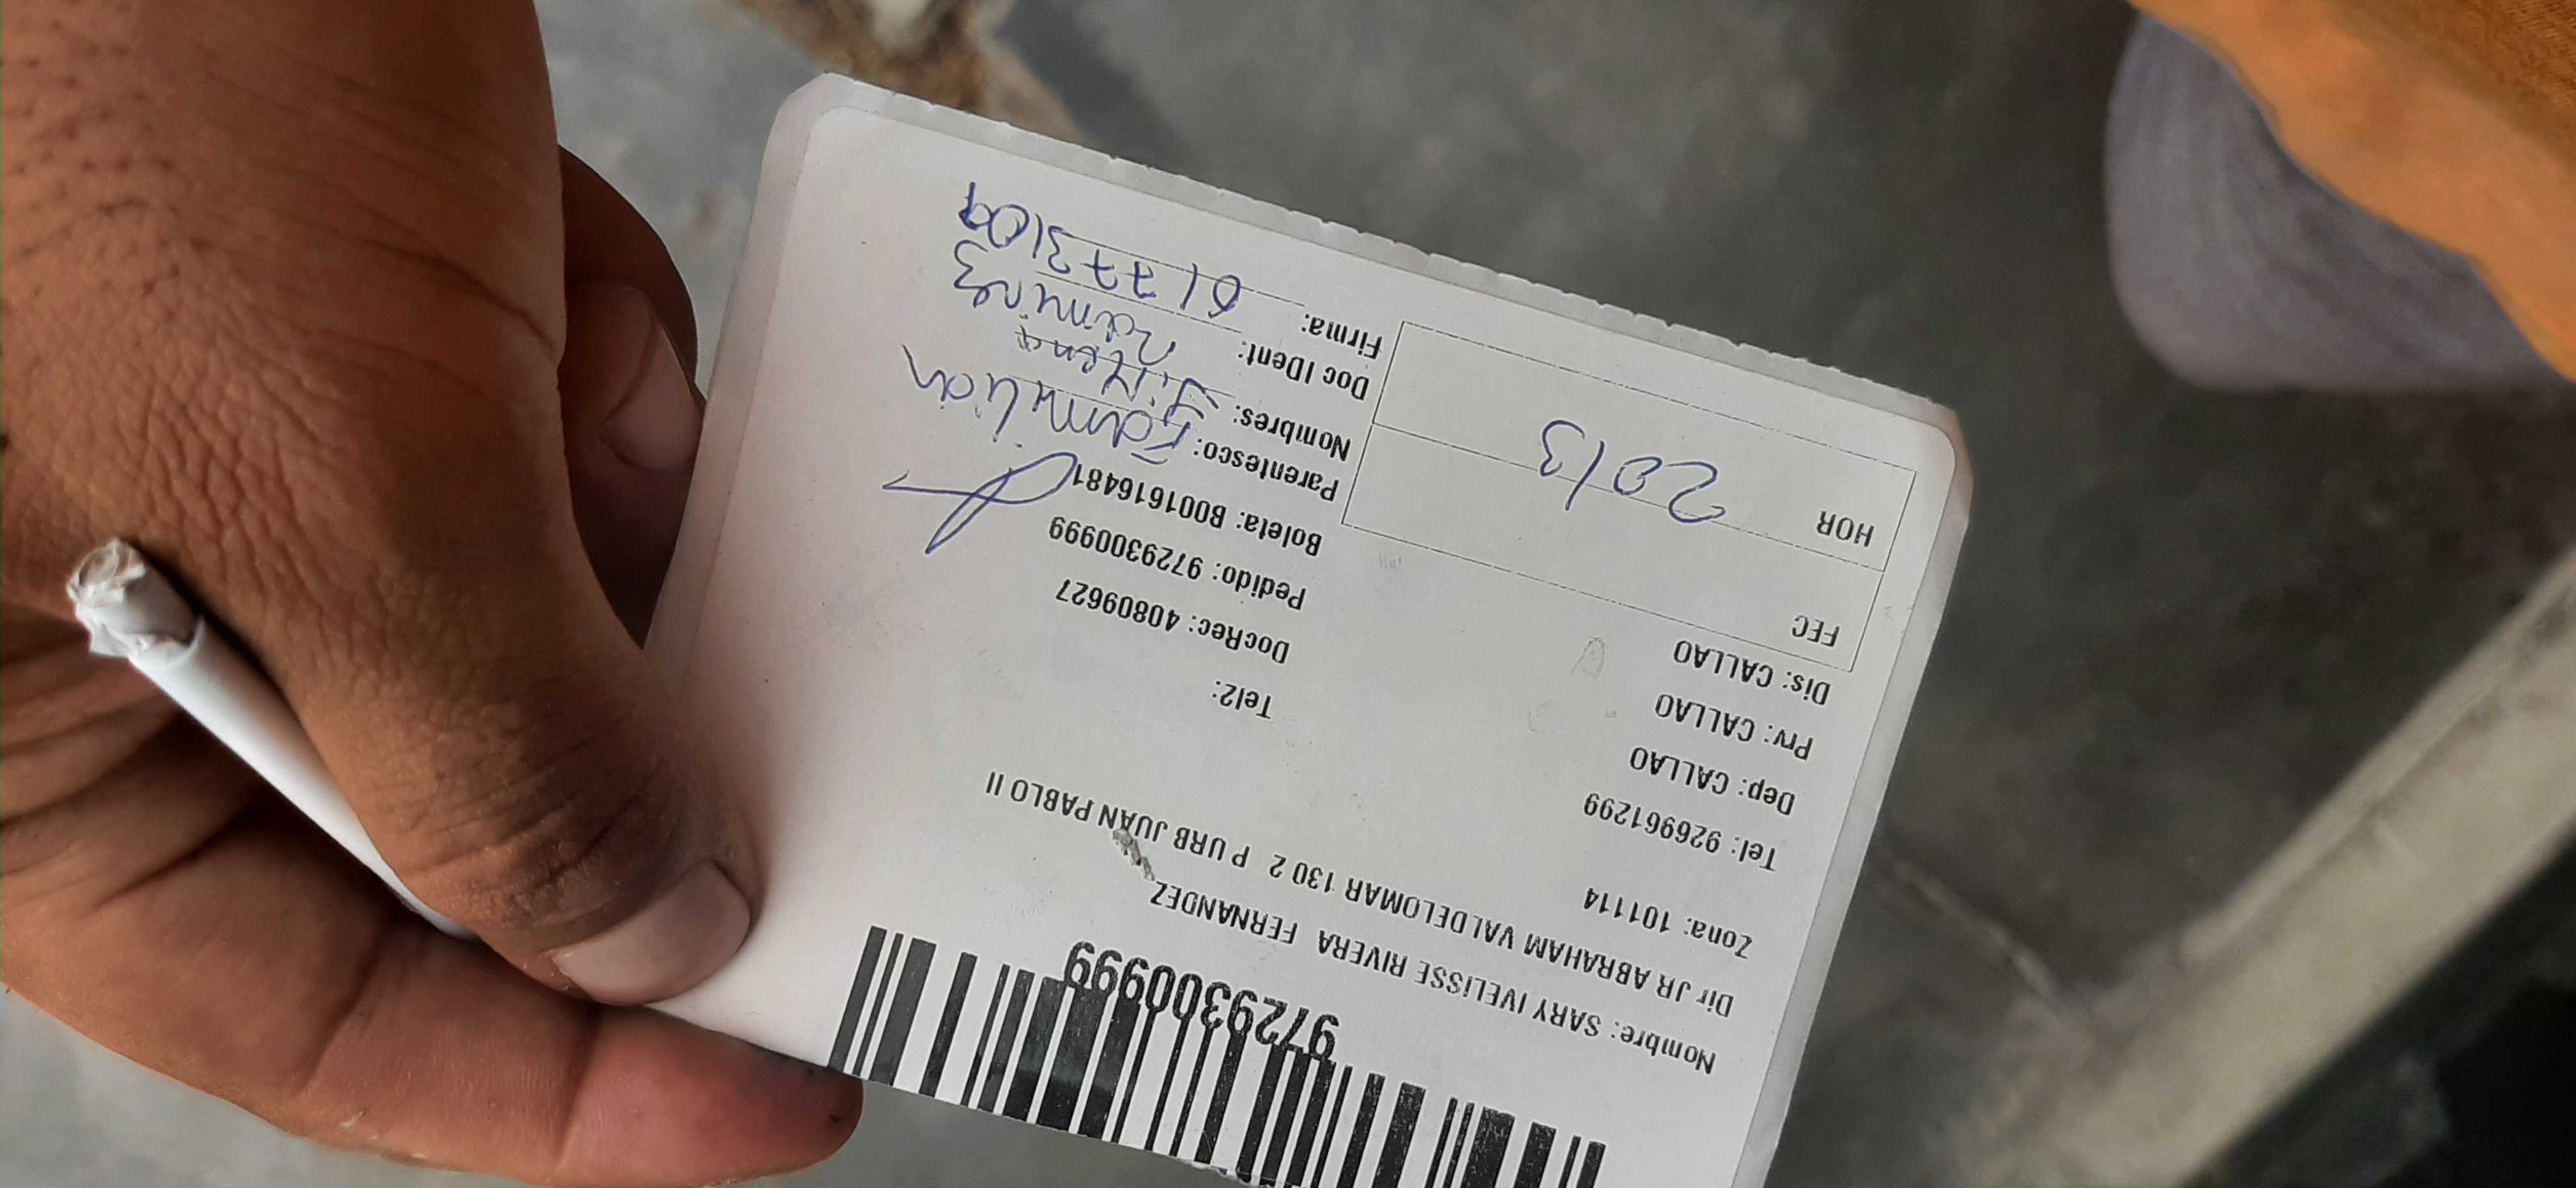 9729300999
Nombre: SARY IVELISSE RIVERA FERNANDEZ
Dir JR ABRAHAM VALDELOMAR 130 2 P URB JUAN PABLO II
Zona: 101114
Tel: 926961299 Tel2:
Dep: CALLAO DocRec: 40809627
Prv: CALLAO Pedido: 9729300999
Dis: CALLAO Boleta: B001616481
FEC
HOR 20/3
Parentesco: Familiar
Nombres: Jimena Ramirez
Doc IDent: 61773109
Firma: